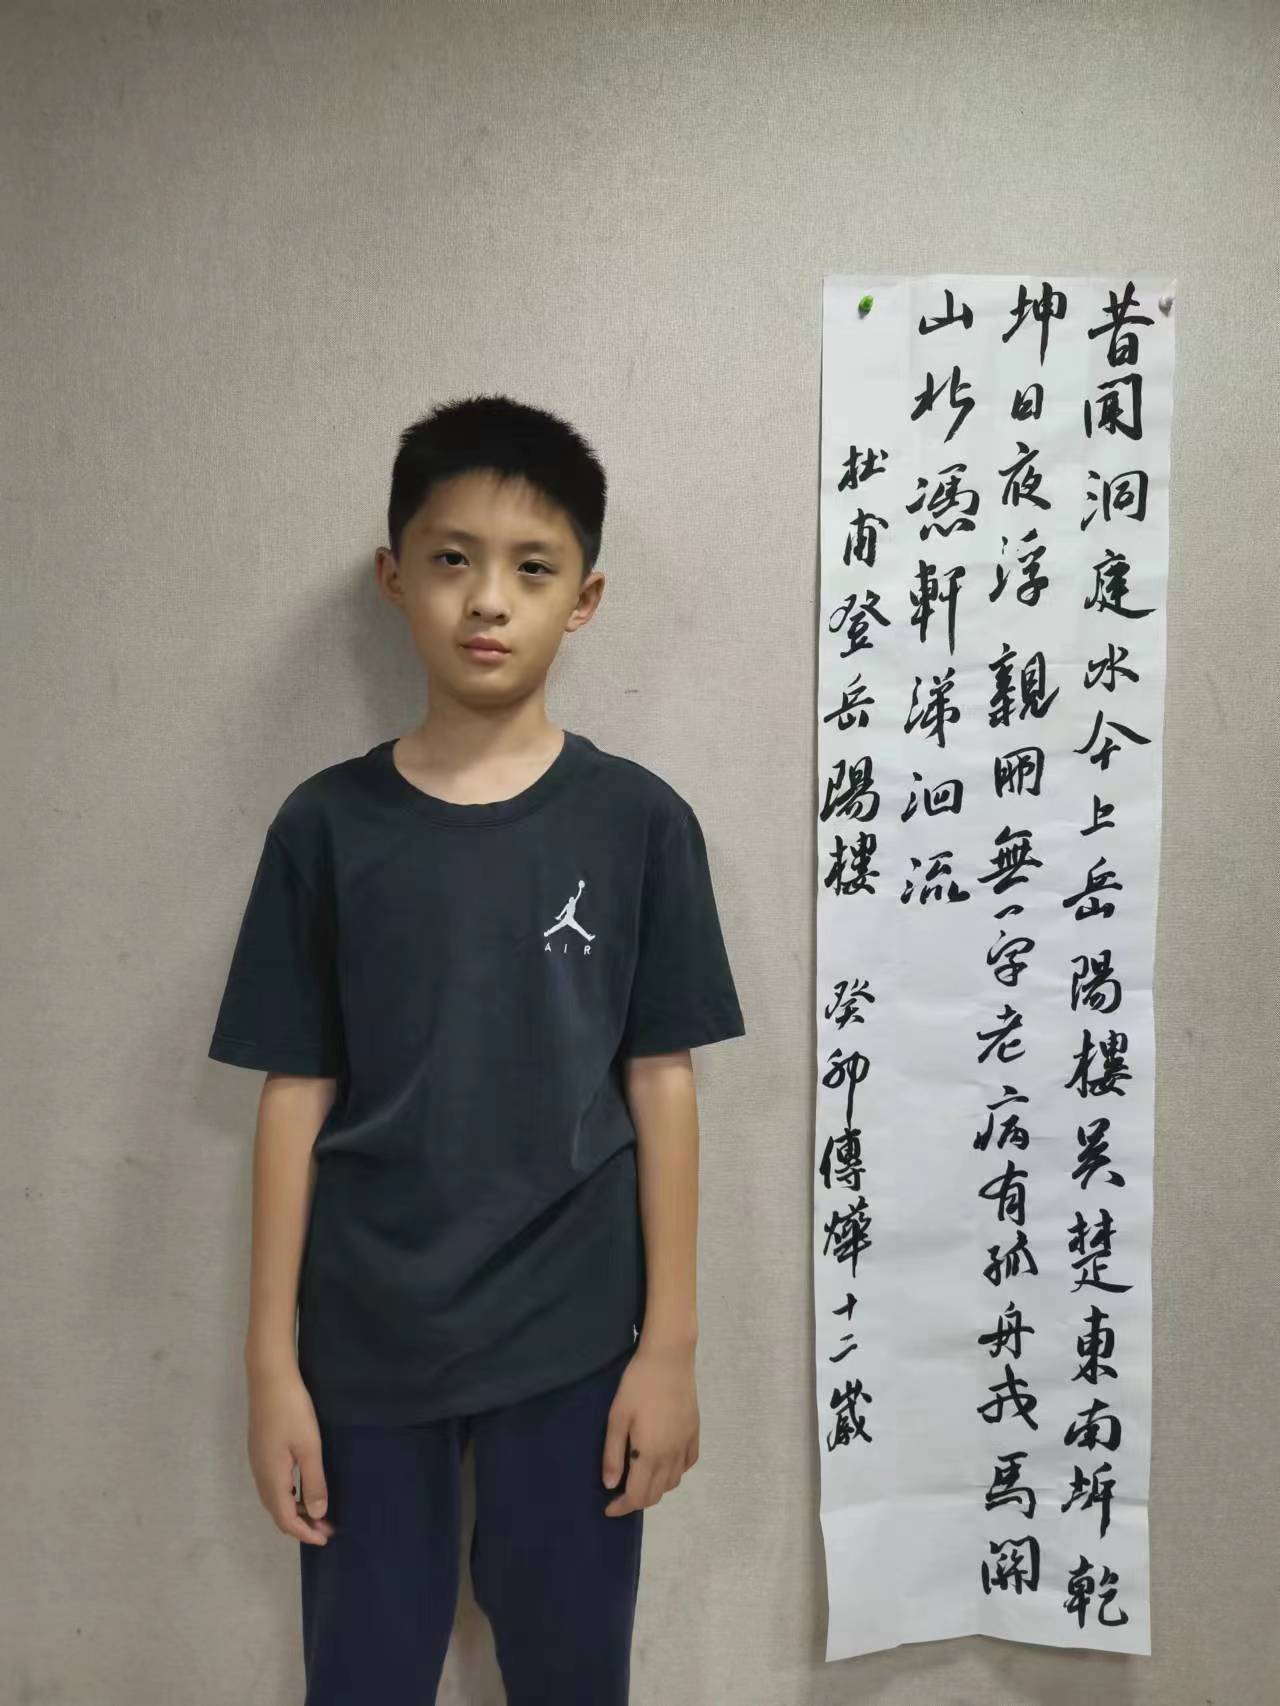 昔聞洞庭水今上岳陽樓吳楚東南坼乾
坤日夜浮親朋無一字老病有孤舟戎馬關
山北憑軒涕泗流
杜甫登岳陽樓 癸卯傅燁十二歲
AIR